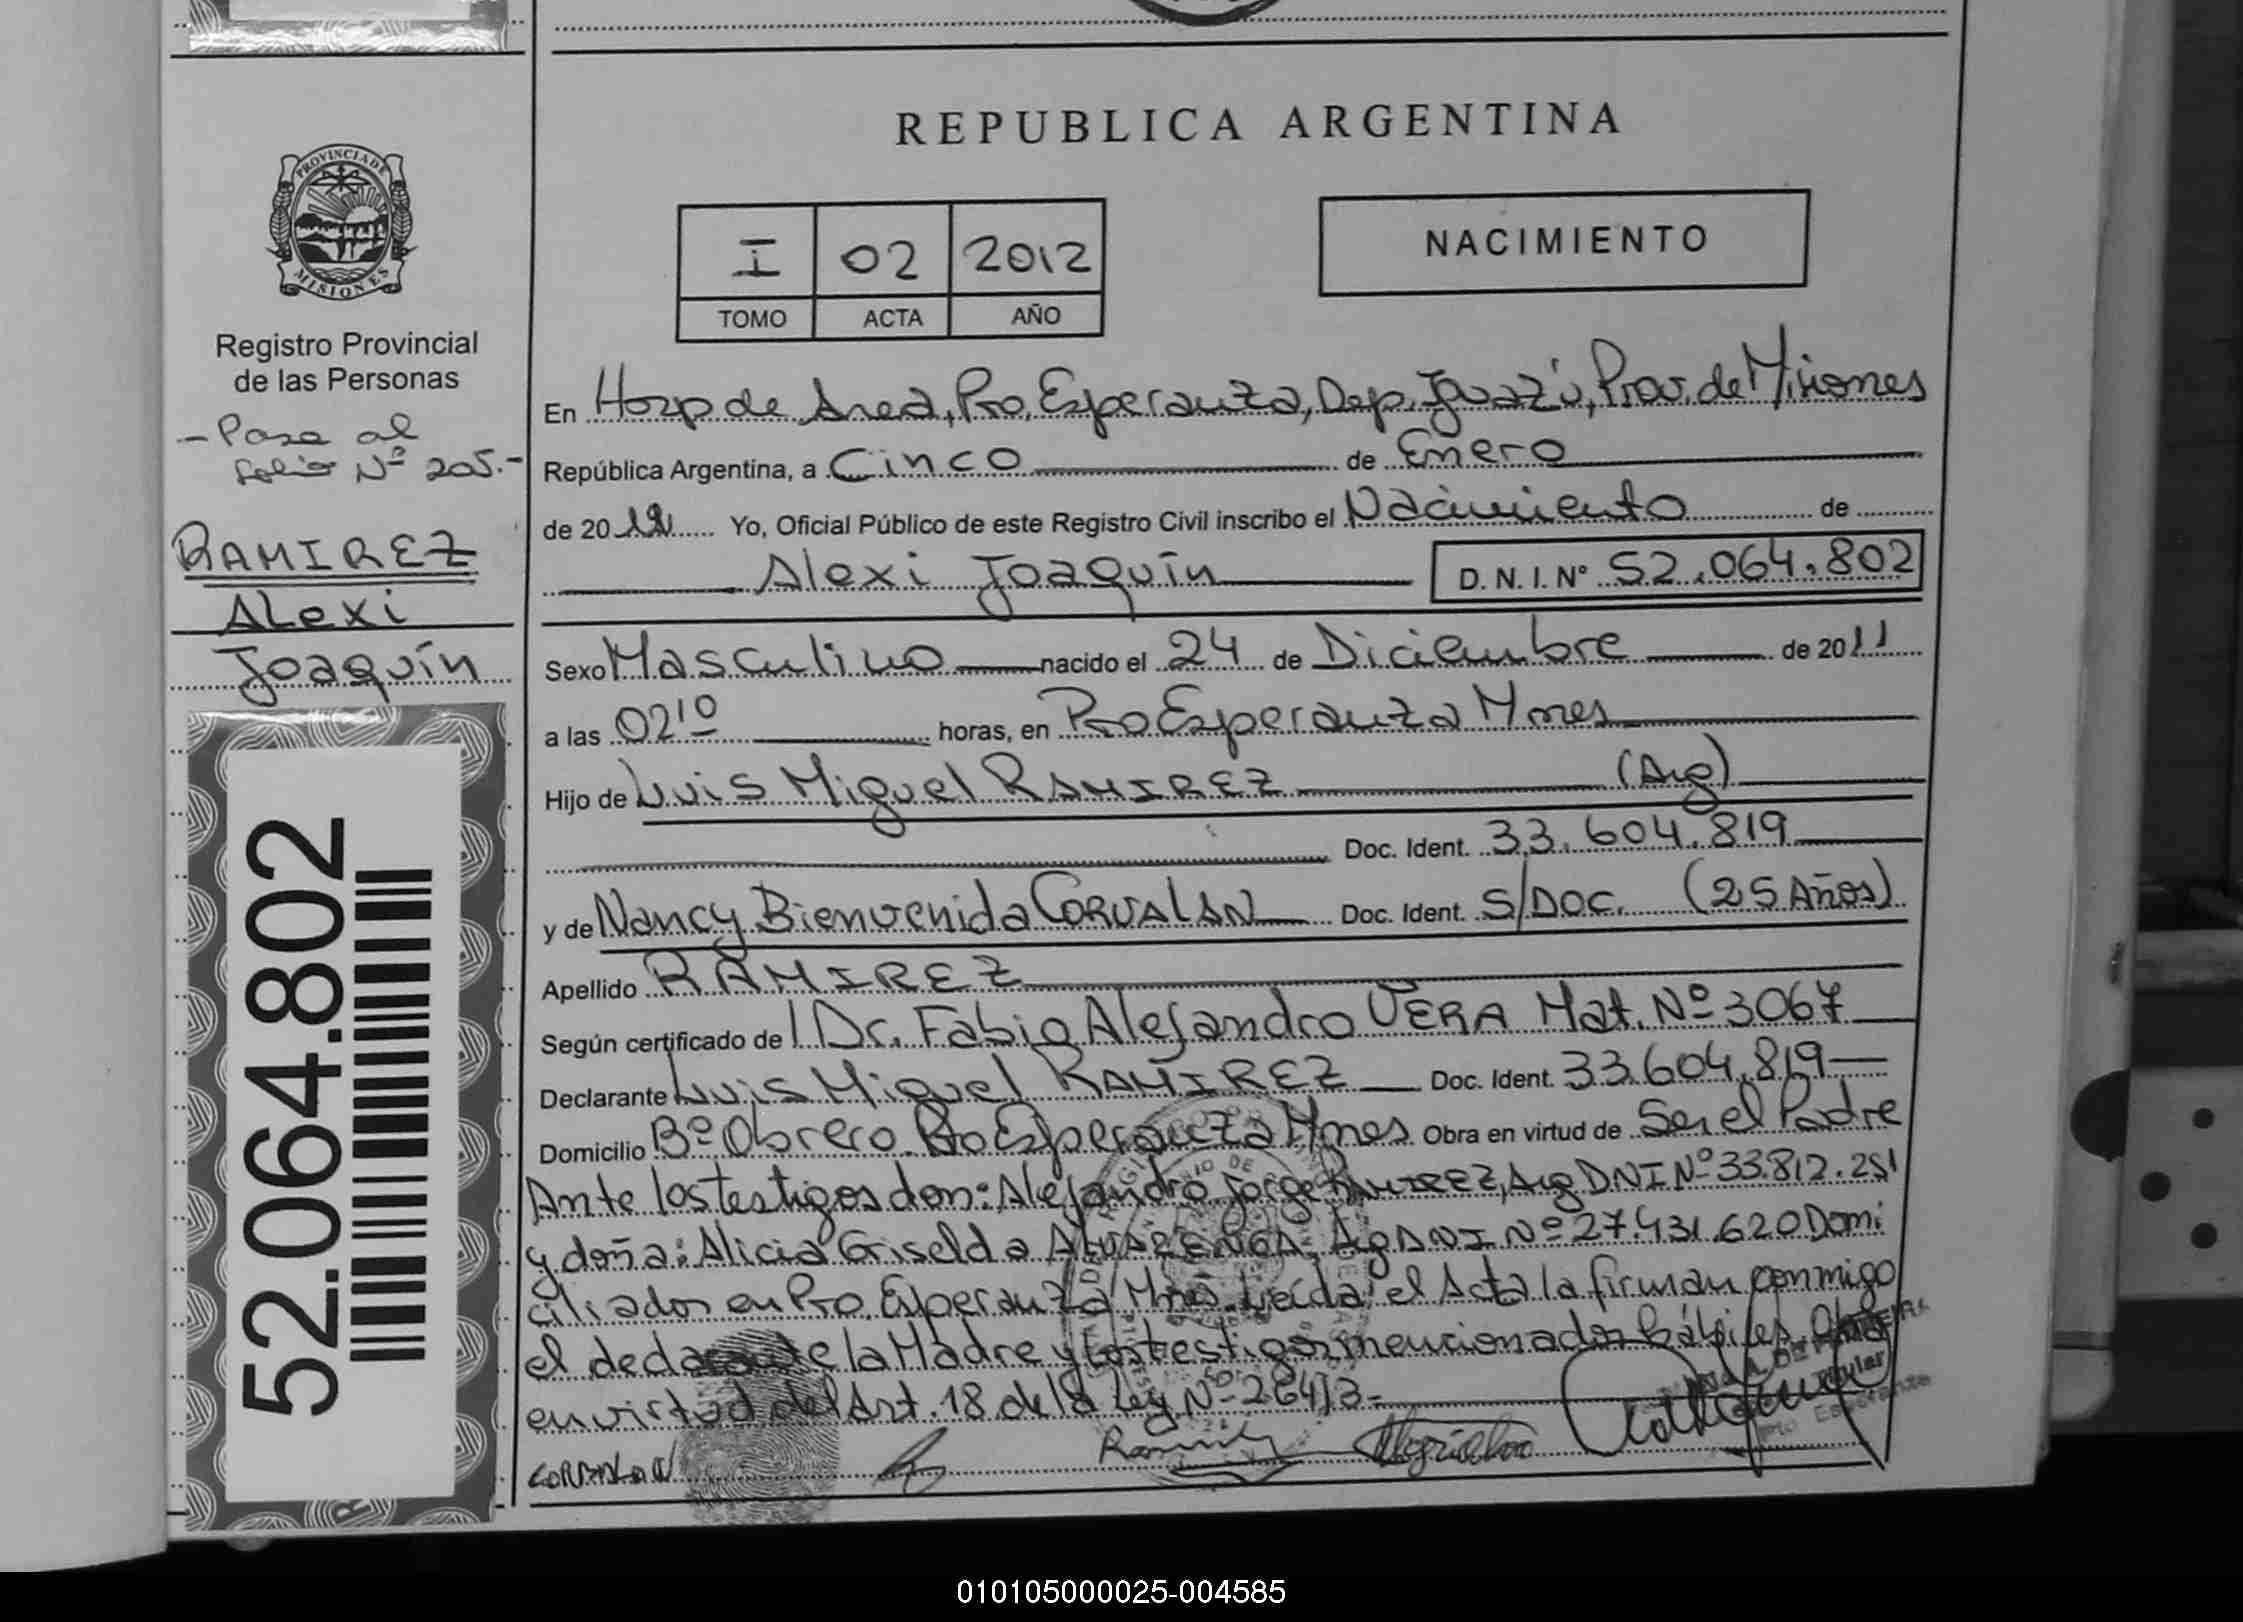 REPUBLICA ARGENTINA
PROVINCIA DE
MISIONES
Registro Provincial
de las Personas
- Pasa al
folio Nº 205.-
RAMIREZ
Alexi
Joaquín
52.064.802
I 02 2012
TOMO ACTA AÑO
NACIMIENTO
En Hosp de Area, Pto. Esperanza, Dep. Iguazú, Prov. de Misiones
República Argentina, a Cinco de Enero
de 2012 Yo, Oficial Público de este Registro Civil inscribo el Nacimiento de
Alexi Joaquín D.N.I. Nº 52.064.802
Sexo Masculino nacido el 24 de Diciembre de 2011
a las 02 10 horas, en Pto Esperanza Mnes
Hijo de Luis Miguel RAMIREZ (Arg)
Doc. Ident. 33.604.819
y de Nancy Bienvenida CORVALAN Doc. Ident. S/DOC. (25 Años)
Apellido RAMIREZ
Según certificado de Dr. Fabio Alejandro VERA Mat. Nº 3067
Declarante Luis Miguel RAMIREZ Doc. Ident. 33.604.819
Domicilio Bº Obrero. Pto Esperanza Mnes Obra en virtud de Ser el Padre
Ante los testigos don: Alejandro Jorge RAMIREZ, Arg DNI Nº 33.812.251
y doña: Alicia Griselda ALVARENGA, Arg DNI Nº 27.431.620 Domi
ciliados en Pto. Esperanza Mnes. Leída el Acta la firman conmigo
el declarante la Madre y los testigos mencionados hábiles. Obra
en virtud del Art. 18 de la Ley Nº 26413-
CORVALAN
010105000025-004585